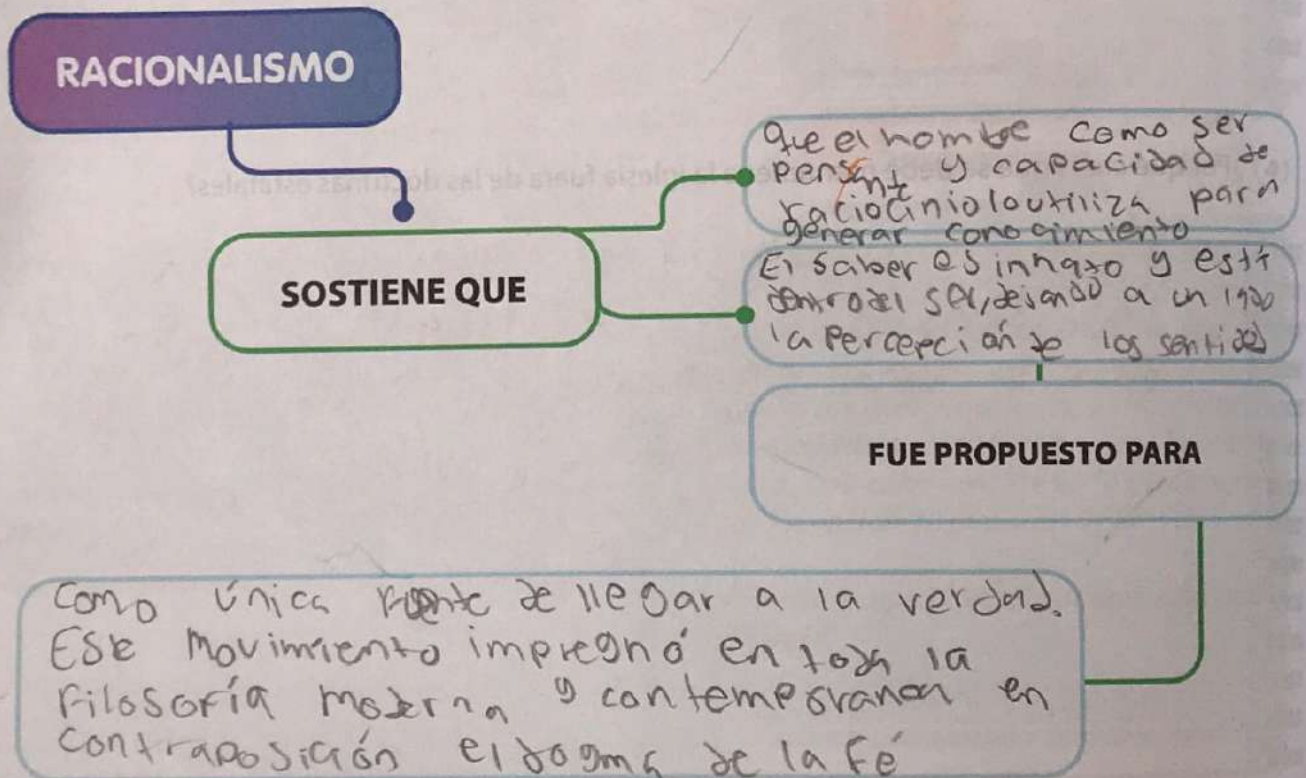 RACIONALISMO
SOSTIENE QUE
Que el hombre como ser
pensante y capacidad de
raciocinio lo utiliza para
generar conocimiento
El saber es innato y está
dentro del ser, dejando a un lado
la percepción de los sentidos
FUE PROPUESTO PARA
Como única fuente de llegar a la verdad.
Este movimiento impregnó en toda la
filosofía moderna y contemporanea en
contraposición el dogma de la fé